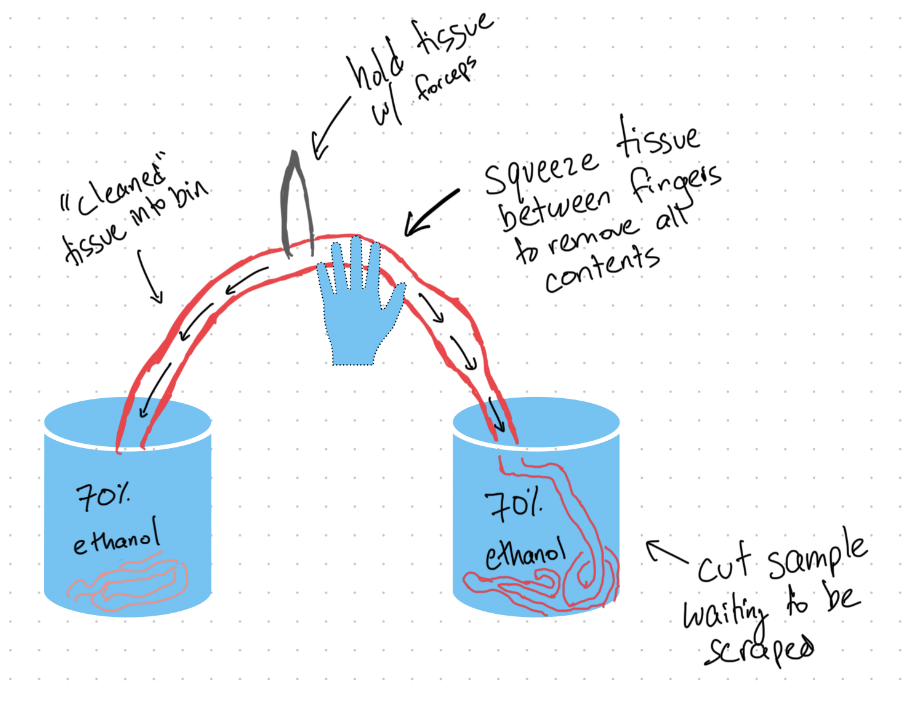 hold tissue
w/ forceps
"cleaned"
tissue into bin
squeeze tissue
between fingers
to remove all
contents
70%
ethanol
70%
ethanol
cut sample
waiting to be
scraped